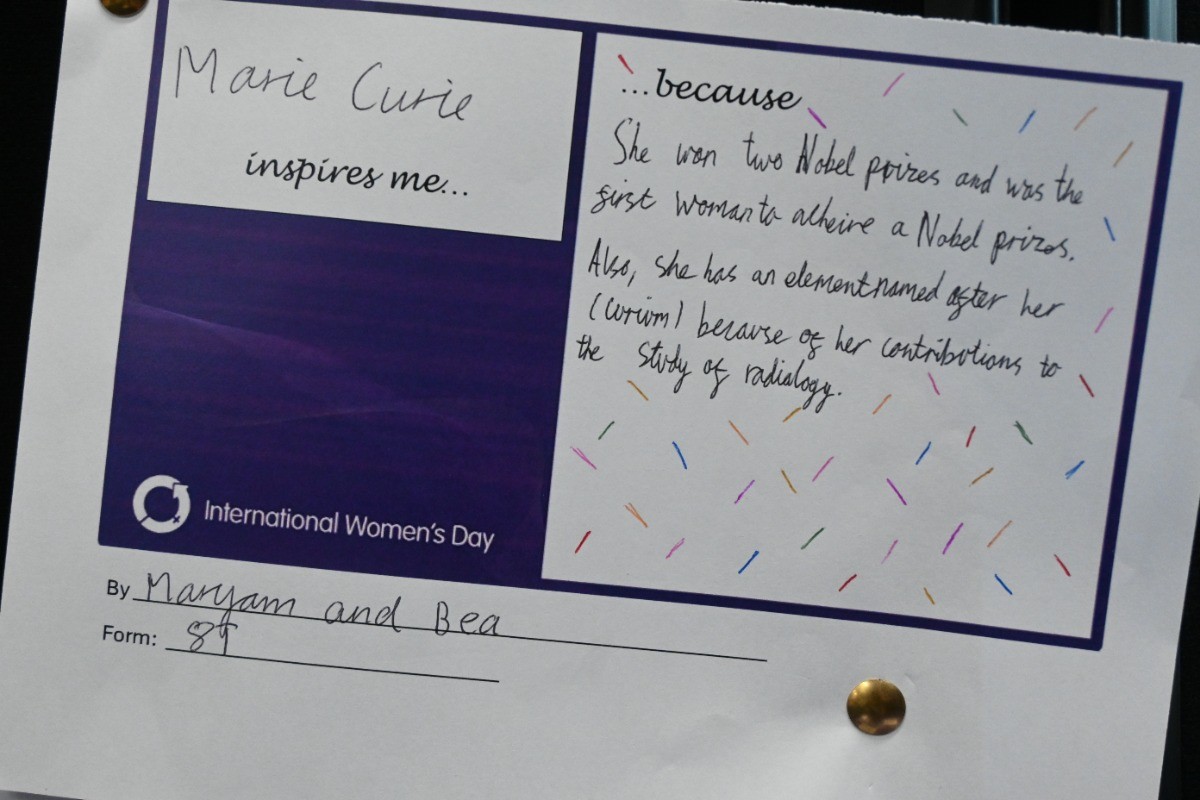 Marie Curie
inspires me...
...because
She won two Nobel prizes and was the
first woman to atheive a Nobel prizes.
Also, she has an element named after her
(Curium) because of her contributions to
the study of radialogy.
International Women's Day
By Maryam and Bea
Form: